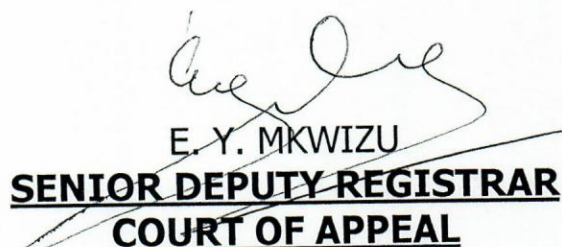 E. Y. MKWIZU
SENIOR DEPUTY REGISTRAR
COURT OF APPEAL